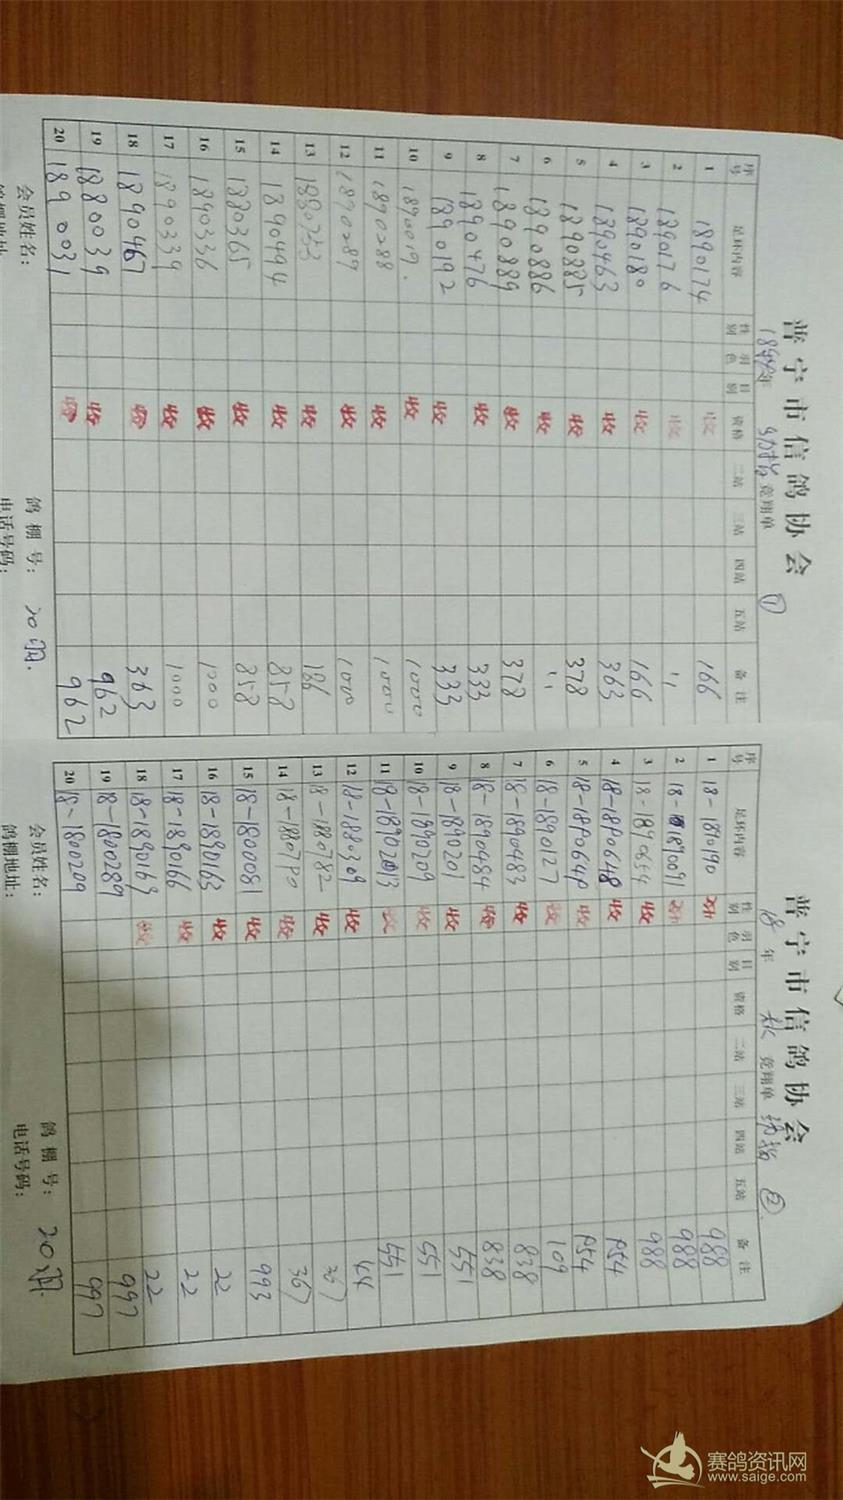 普宁市信鸽协会
18 年 竞翔单 ①
序号 足环内容 性别 羽色 目别 资格 二站 三站 四站 五站 备注
1 1890174 收 166
2 1890176 收 〃
3 1890180 收 166
4 1890463 收 363
5 1890885 收 378
6 1890886 收 〃
7 1890889 收 378
8 1890476 收 333
9 1890192 收 333
10 1890019. 收 10000
11 1890288 收 10000
12 1890289 收 1000
13 收 186
14 1890494 收 858
15 1880365 收 858
16 1890336 收 1000
17 1890339 收 1000
18 1890467 收 363
19 1880039 收 962
20 1890031 收 962
会员姓名： 鸽棚号： 20羽.
鸽棚地址 电话号码：
普宁市信鸽协会
18 年 秋 竞翔单 ②
序号 足环内容 性别 羽色 目别 资格 二站 三站 四站 五站 备注
1 18-1890190 988
2 18-1890091 988
3 18-1890654 收 988
4 18-1890648 收 A54
5 18-1890640 收 A54
6 18-1890127 收 109
7 18-1890483 收 838
8 18-1890484 收 838
9 18-1890201 收 551
10 18-1890209 收 551
11 收 551
12 18-1880309 收 44
13 18-1880782 收 367
14 18-1880790 收 367
15 18-1800081 收 993
16 18-1890163 收 22
17 18-1890166 收 22
18 18-1890169 收 22
19 18-1800289 997
20 18-1800209 997
会员姓名： 鸽棚号： 20羽.
鸽棚地址： 电话号码：
赛鸽资讯网
www.saige.com